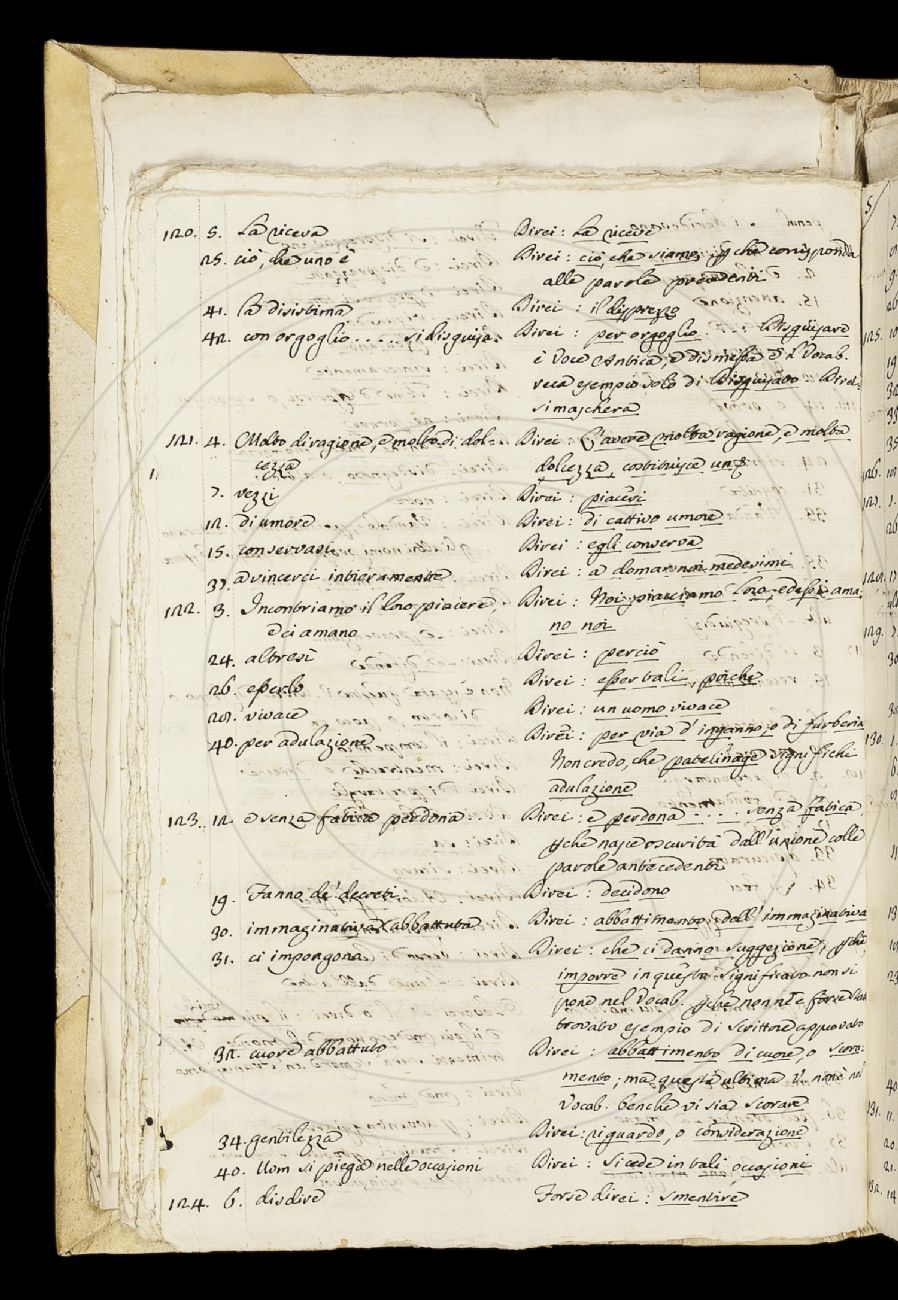 120. 5. La riceva Direi: La riceve
25. ciò, che uno è Direi: ciò, che siamo, pchè corrisponda
alle parole precedenti
41. la disistima Direi: il disprezzo
42. con orgoglio ..... si disguisa. Direi: per orgoglio .... Disguisare
è voce Antica, e dismessa ed il Vocab.
reca esempio solo di Disguisato. Direi:
si maschera
121. 4. Molto di ragione, e molto di dol- Direi: L'avere molta ragione, e molta
cezza dolcezza, costituisce un
7. vezzi Direi: piaceri
12. di umore Direi: di cattivo umore
15. conservasi Direi: egli conserva
37. a vincerci intieramente Direi: a domar noi medesimi
122. 3. Incontriamo il loro piacere, Direi: Noi piacciamo loro, ed essi ama
e ci amano no noi
24. altresì Direi: perciò
26. esserlo Direi: esser tali, poichè
28. vivace Direi: un uomo vivace
40. per adulazione Direi: per via d'inganno, o di furberia
Non credo, che patelinage significhi
adulazione
123. 12. e senza fatica perdona Direi: e perdona .... senza fatica
pchè nasce oscurità dall'unione colle
parole antecedenti
19. Fanno de' decreti Direi: decidono
30. immaginativa abbattuta Direi: abbattimento dell'immaginativa
31. ci impongono Direi: che ci danno suggezione, pchè
imporre in questo significato non si
pone nel Vocab. pchè non n'è forse stato
trovato esempio di Scrittore approvato
32. cuore abbattuto Direi: abbattimento di cuore, o scora:
mento; ma questa ultima v. non è nel
Vocab. benchè vi sia scorare
34. gentilezza Direi: riguardo, o considerazione
40. Uom si piega nelle occasioni Direi: si cede in tali occasioni
124. 6. disdire Forse direi: smentire
5
125.
126.
127.
128.
129.
130.
131.
132.